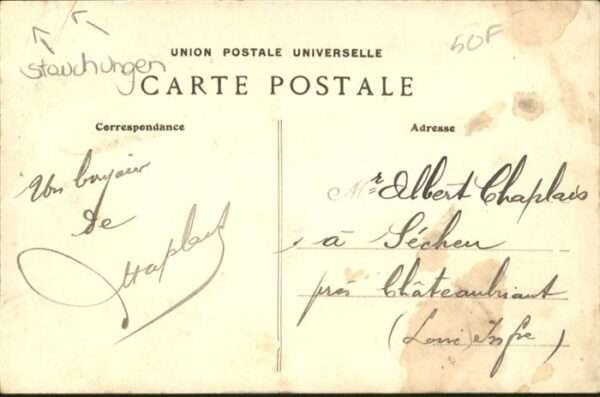 Stauchungen
50F
UNION POSTALE UNIVERSELLE
CARTE POSTALE
Correspondance
Adresse
Un bonjour
de
Chaplais
Mr Albert Chaplais
à Sécheu
près Châteaubriant
(Loire Infre)